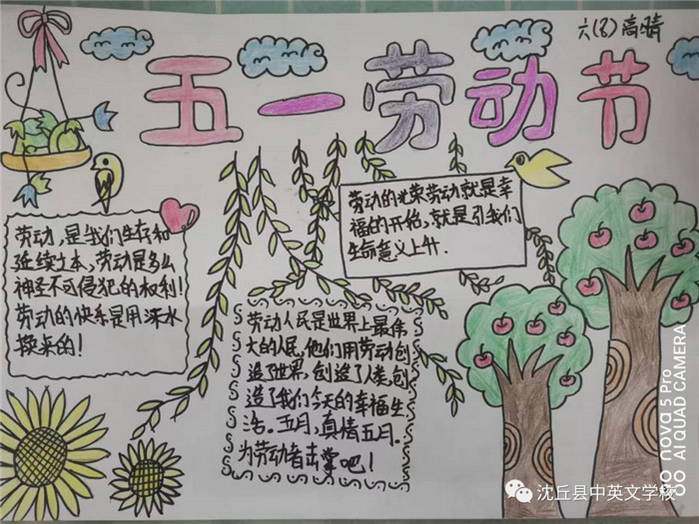 六(8)高晴
五一劳动节
劳动的光荣劳动就是幸
福的开始,就是引我们
生命意义上升.
劳动,是我们生存和
延续之本,劳动是多么
神圣不可侵犯的权利!
劳动的快乐是用汗水
换来的!
劳动人民是世界上最伟
大的人民,他们用劳动创
造了世界,创造了人类,创
造了我们今天的幸福生
活。五月,真情五月.
为劳动者击掌吧!
nova 5 Pro
AI QUAD CAMERA
沈丘县中英文学校